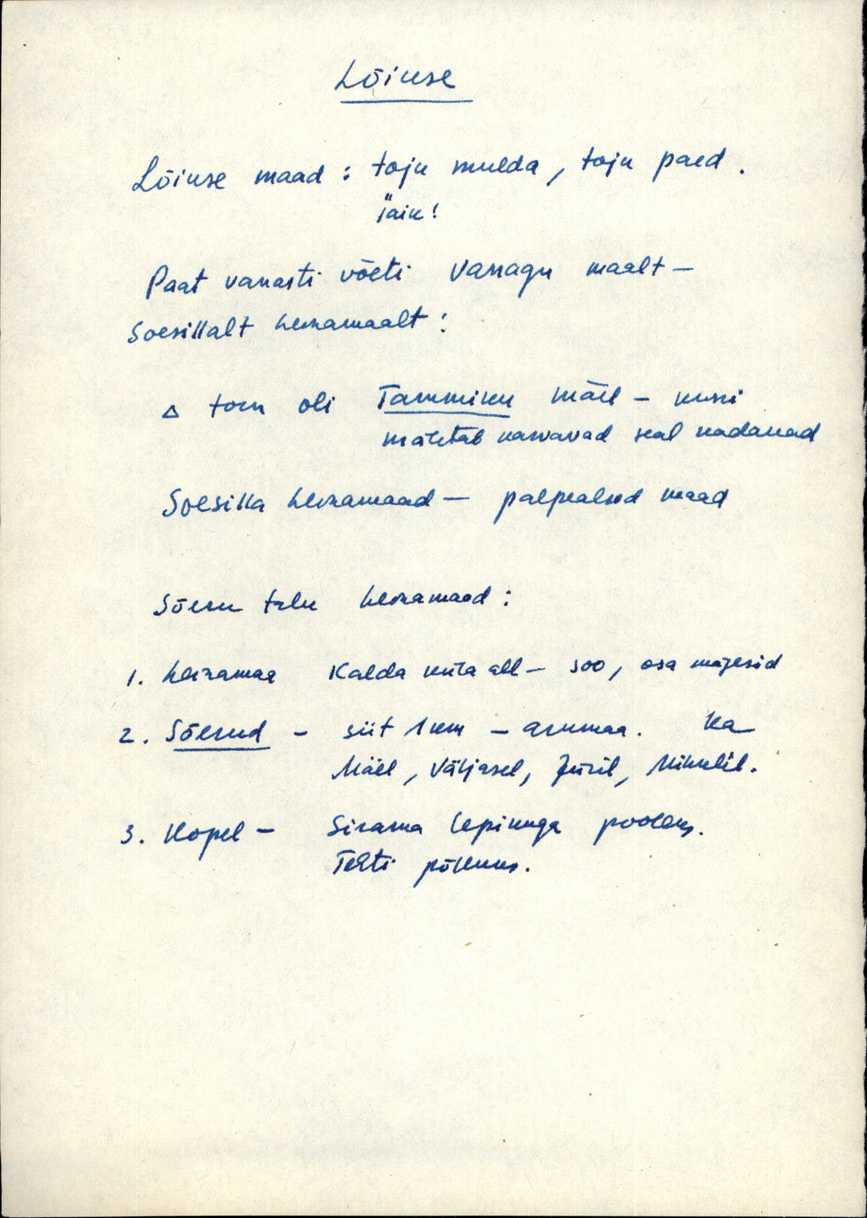 Lõiuse
Lõiuse maad: toju mulda, toju paed.
Jäik!
Paat vanasti võeti Varragu maalt –
Soesillalt heinamaalt!
Δ torn oli Tammiku mäel – kuni
mäletab karvavad seal kadakad
Soesilla heinamaad – paepealsed maad
Sõeru talu heinamaad:
1. heinamaa Kalda küla all – soo, osa mägesid
2. Sõerud – siit 1 km – arumaa. Ka
Mäel, Väljasel, Jüril, Mihklil.
3. Kopel – Sirama lepikuga pooleks.
Tehti põlluks.